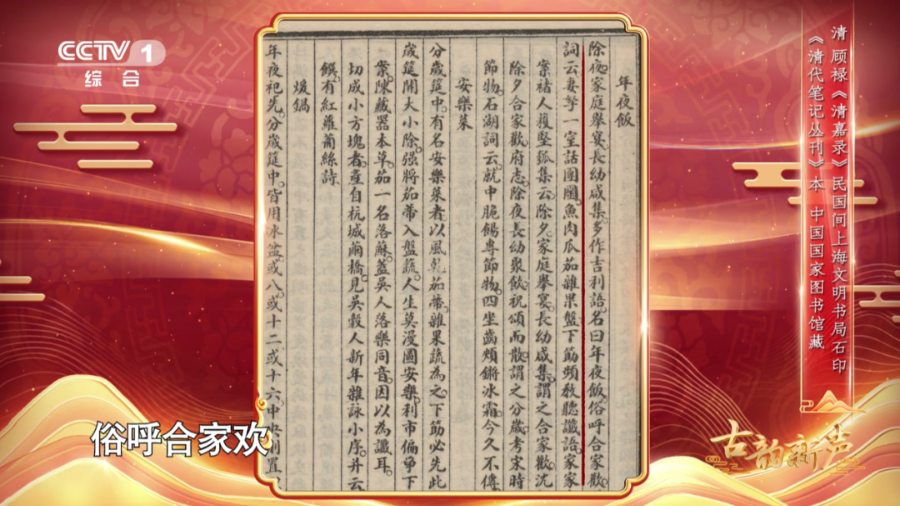 CCTV 1
综合
清 顾禄《清嘉录》民国间上海文明书局石印
《清代笔记丛刊》本 中国国家图书馆藏
年夜飯
除夜家庭舉宴長幼咸集多作吉利語名曰年夜飯俗呼合家歡
詞云妻孥一室話團圞魚肉瓜茄雜果盤下筯頻教聽讖語家家
案褚人穫堅瓠集云除夕家庭舉宴長幼咸集謂之合家歡沈
除夕合家歡府志除夜長幼聚飲祝頌而散謂之分歲考宋時
節物石湖詞云就中脆餳專節物四坐齒頰鏘冰霜今久不傳
安樂菜
分歲筵中有名安樂菜者以風乾茄蒂雜果蔬為之下筯必先此
歲筵開大小除強將茄蒂入盤蔬人生莫漫圖安樂利市偏爭下
案陳藏器本草茄一名落蘇蓋吳人落樂同音因以為讖耳
切成小方塊者產自杭城繭橋見吳穀人新年雜詠小序并云
饌有紅蘿蔔絲詩
煖鍋
年夜祀先分歲筵中皆用冰盆或八或十二或十六中央則置
俗呼合家欢
古韵新声